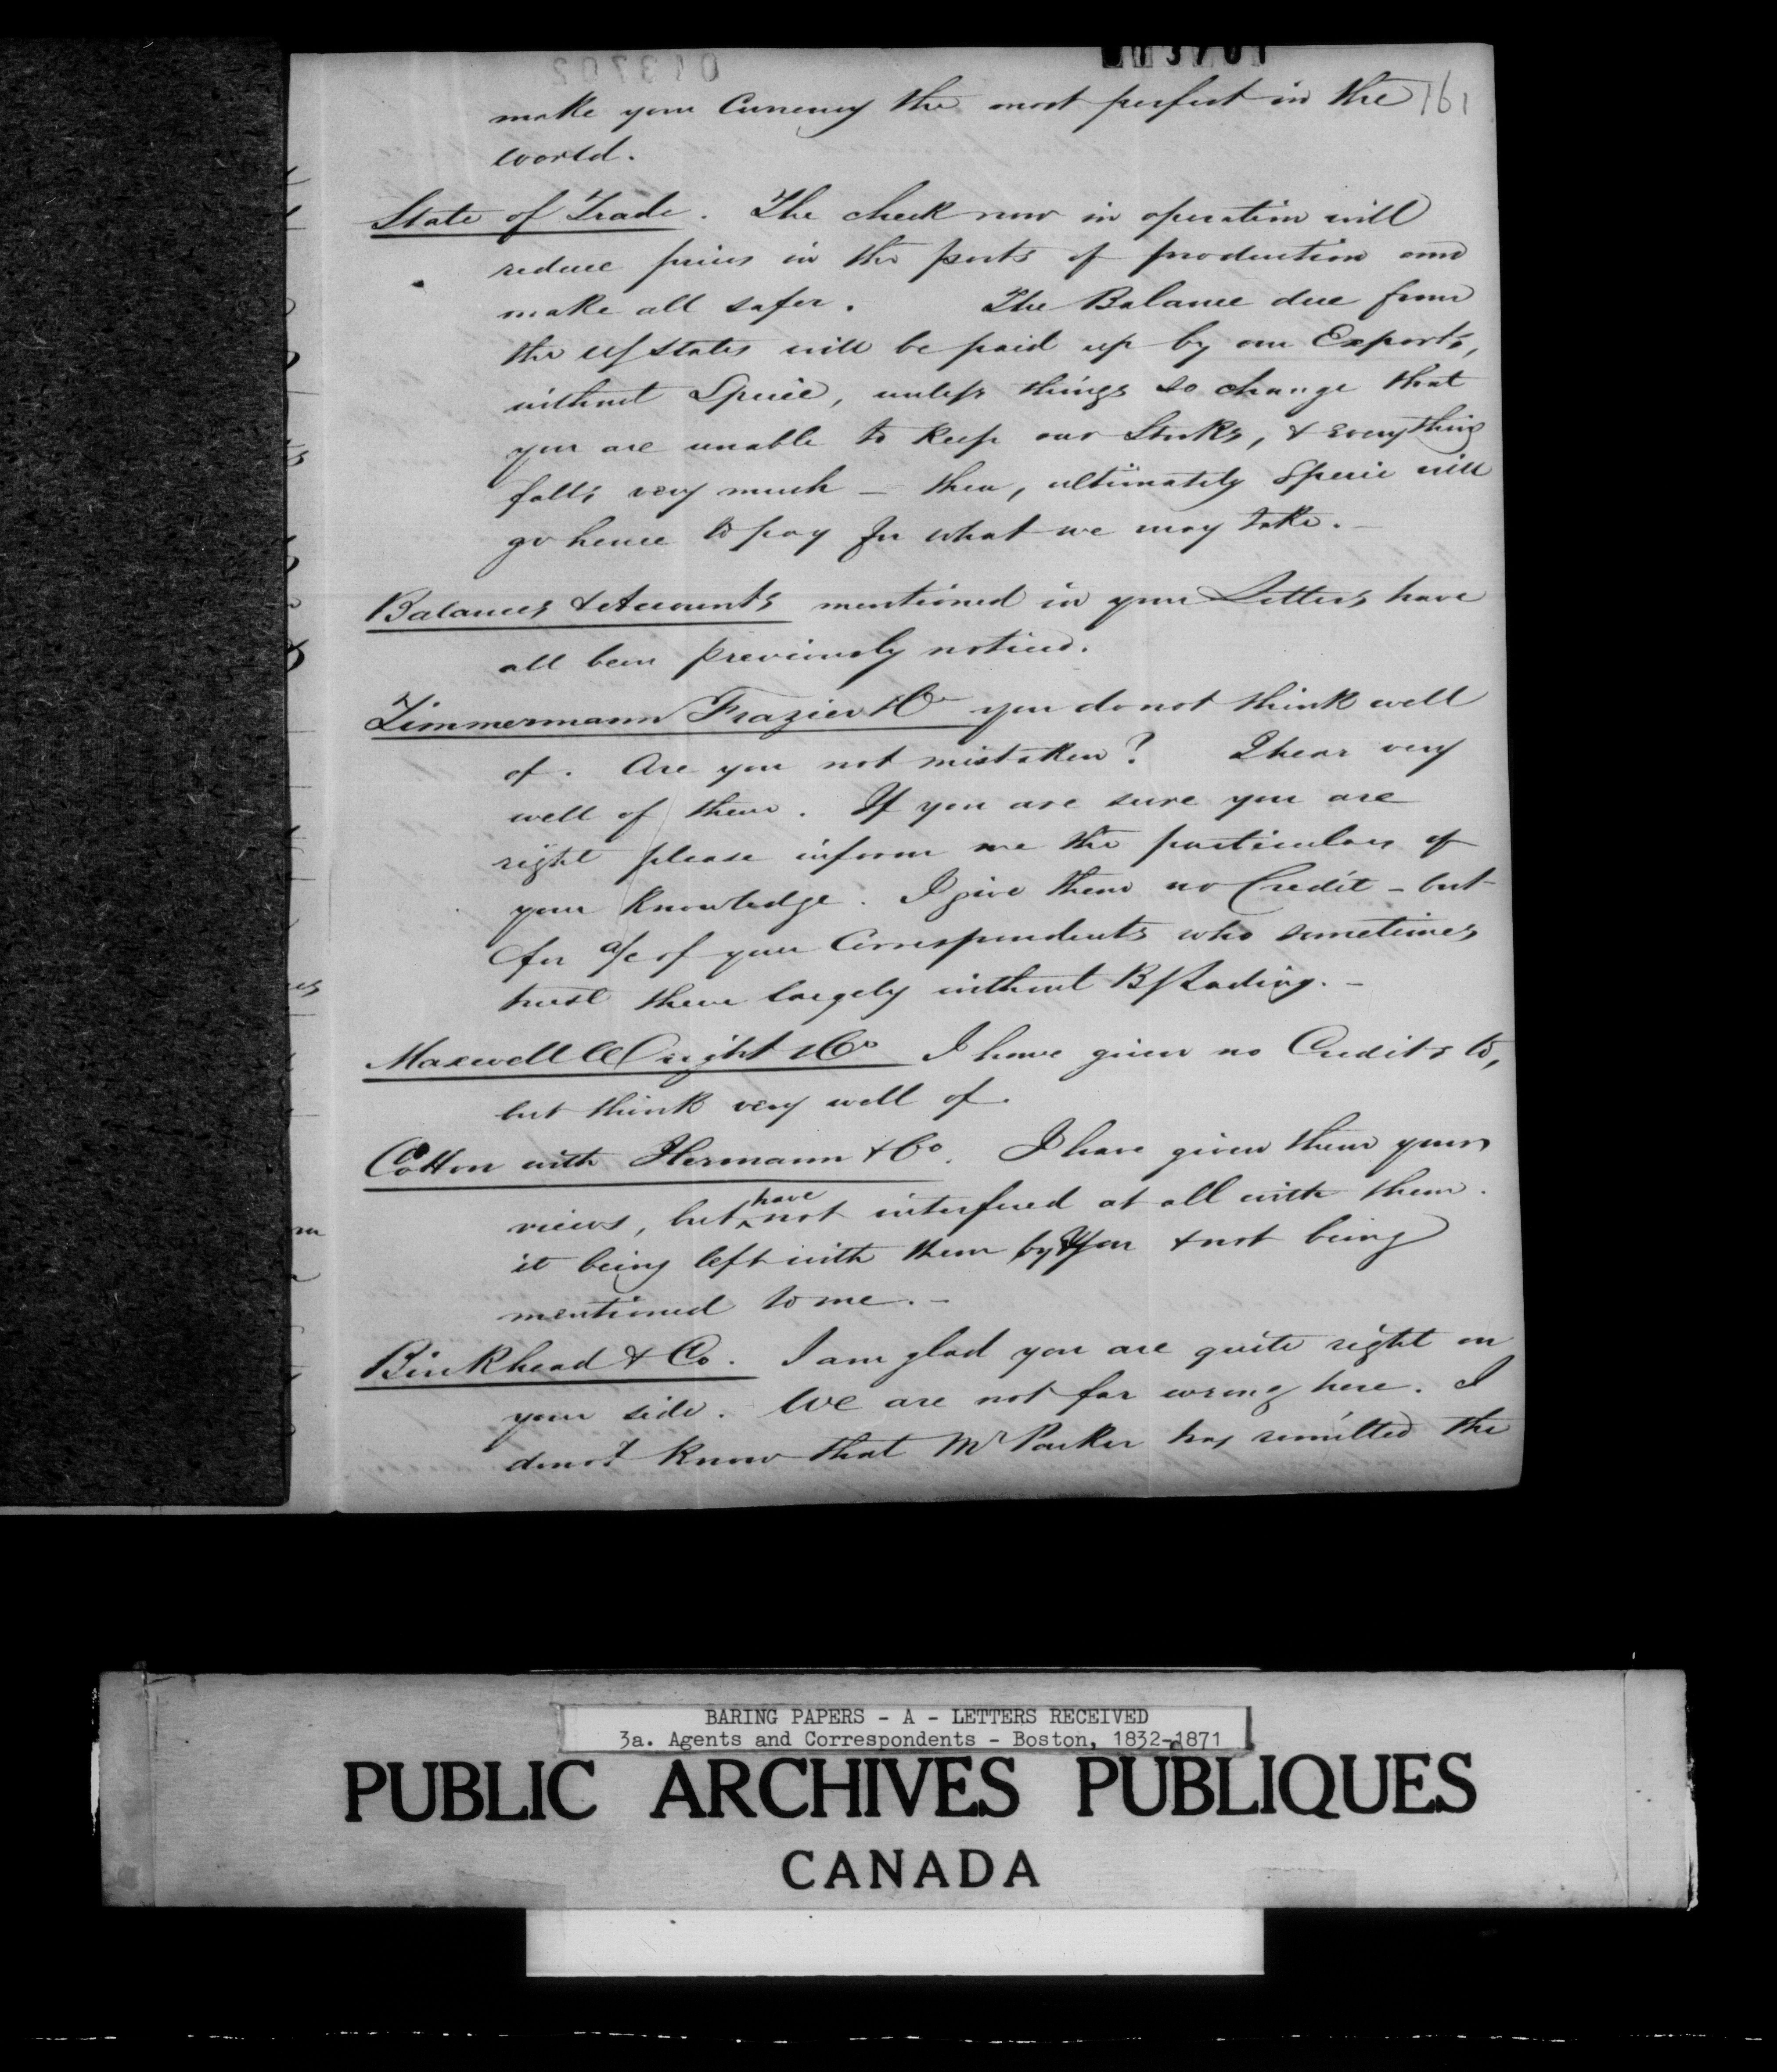 013701
161
make your Currency the most perfect in the
world.
State of Trade. The check now in operation will
reduce prices in the ports of production and
make all safer. The Balance due from
the U/States will be paid up by our Exports,
without Specie, unless things so change that
you are unable to keep our Stocks, & Everything
falls very much — then, ultimately Specie will
go hence to pay for what we may take. —
Balances & Accounts mentioned in your Letters have
all been previously noticed.
Zimmermann Frazier & Co you do not think well
of. Are you not mistaken? I hear very
well of them. If you are sure you are
right please inform me the particulars of
your knowledge. I give them no Credit — but
for a/c of your Correspondents who sometimes
trust them largely without B/Lading. —
Maxwell Wright & Co I have given no Credits to,
but think very well of.
Cotton with Hermann & Co. I have given them your
views, but have not interfered at all with them.
it being left with them by You & not being
mentioned to me. —
Birckhead & Co. I am glad you are quite right on
your side. We are not far wrong here. I
do not know that Mr Parker has remitted the
BARING PAPERS - A - LETTERS RECEIVED
3a. Agents and Correspondents - Boston, 1832-1871
PUBLIC ARCHIVES PUBLIQUES
CANADA